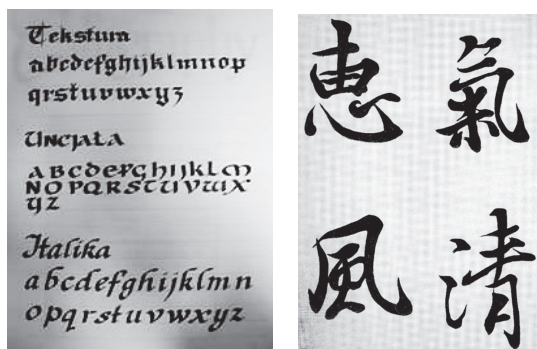 Tekstura
abcdefghijklmnop
qrstuvwxyz
Uncjała
abcdefghijklm
nopqrstuvwx
yz
Italika
abcdefghijklmn
opqrstuvwxyz
氣清
恵風